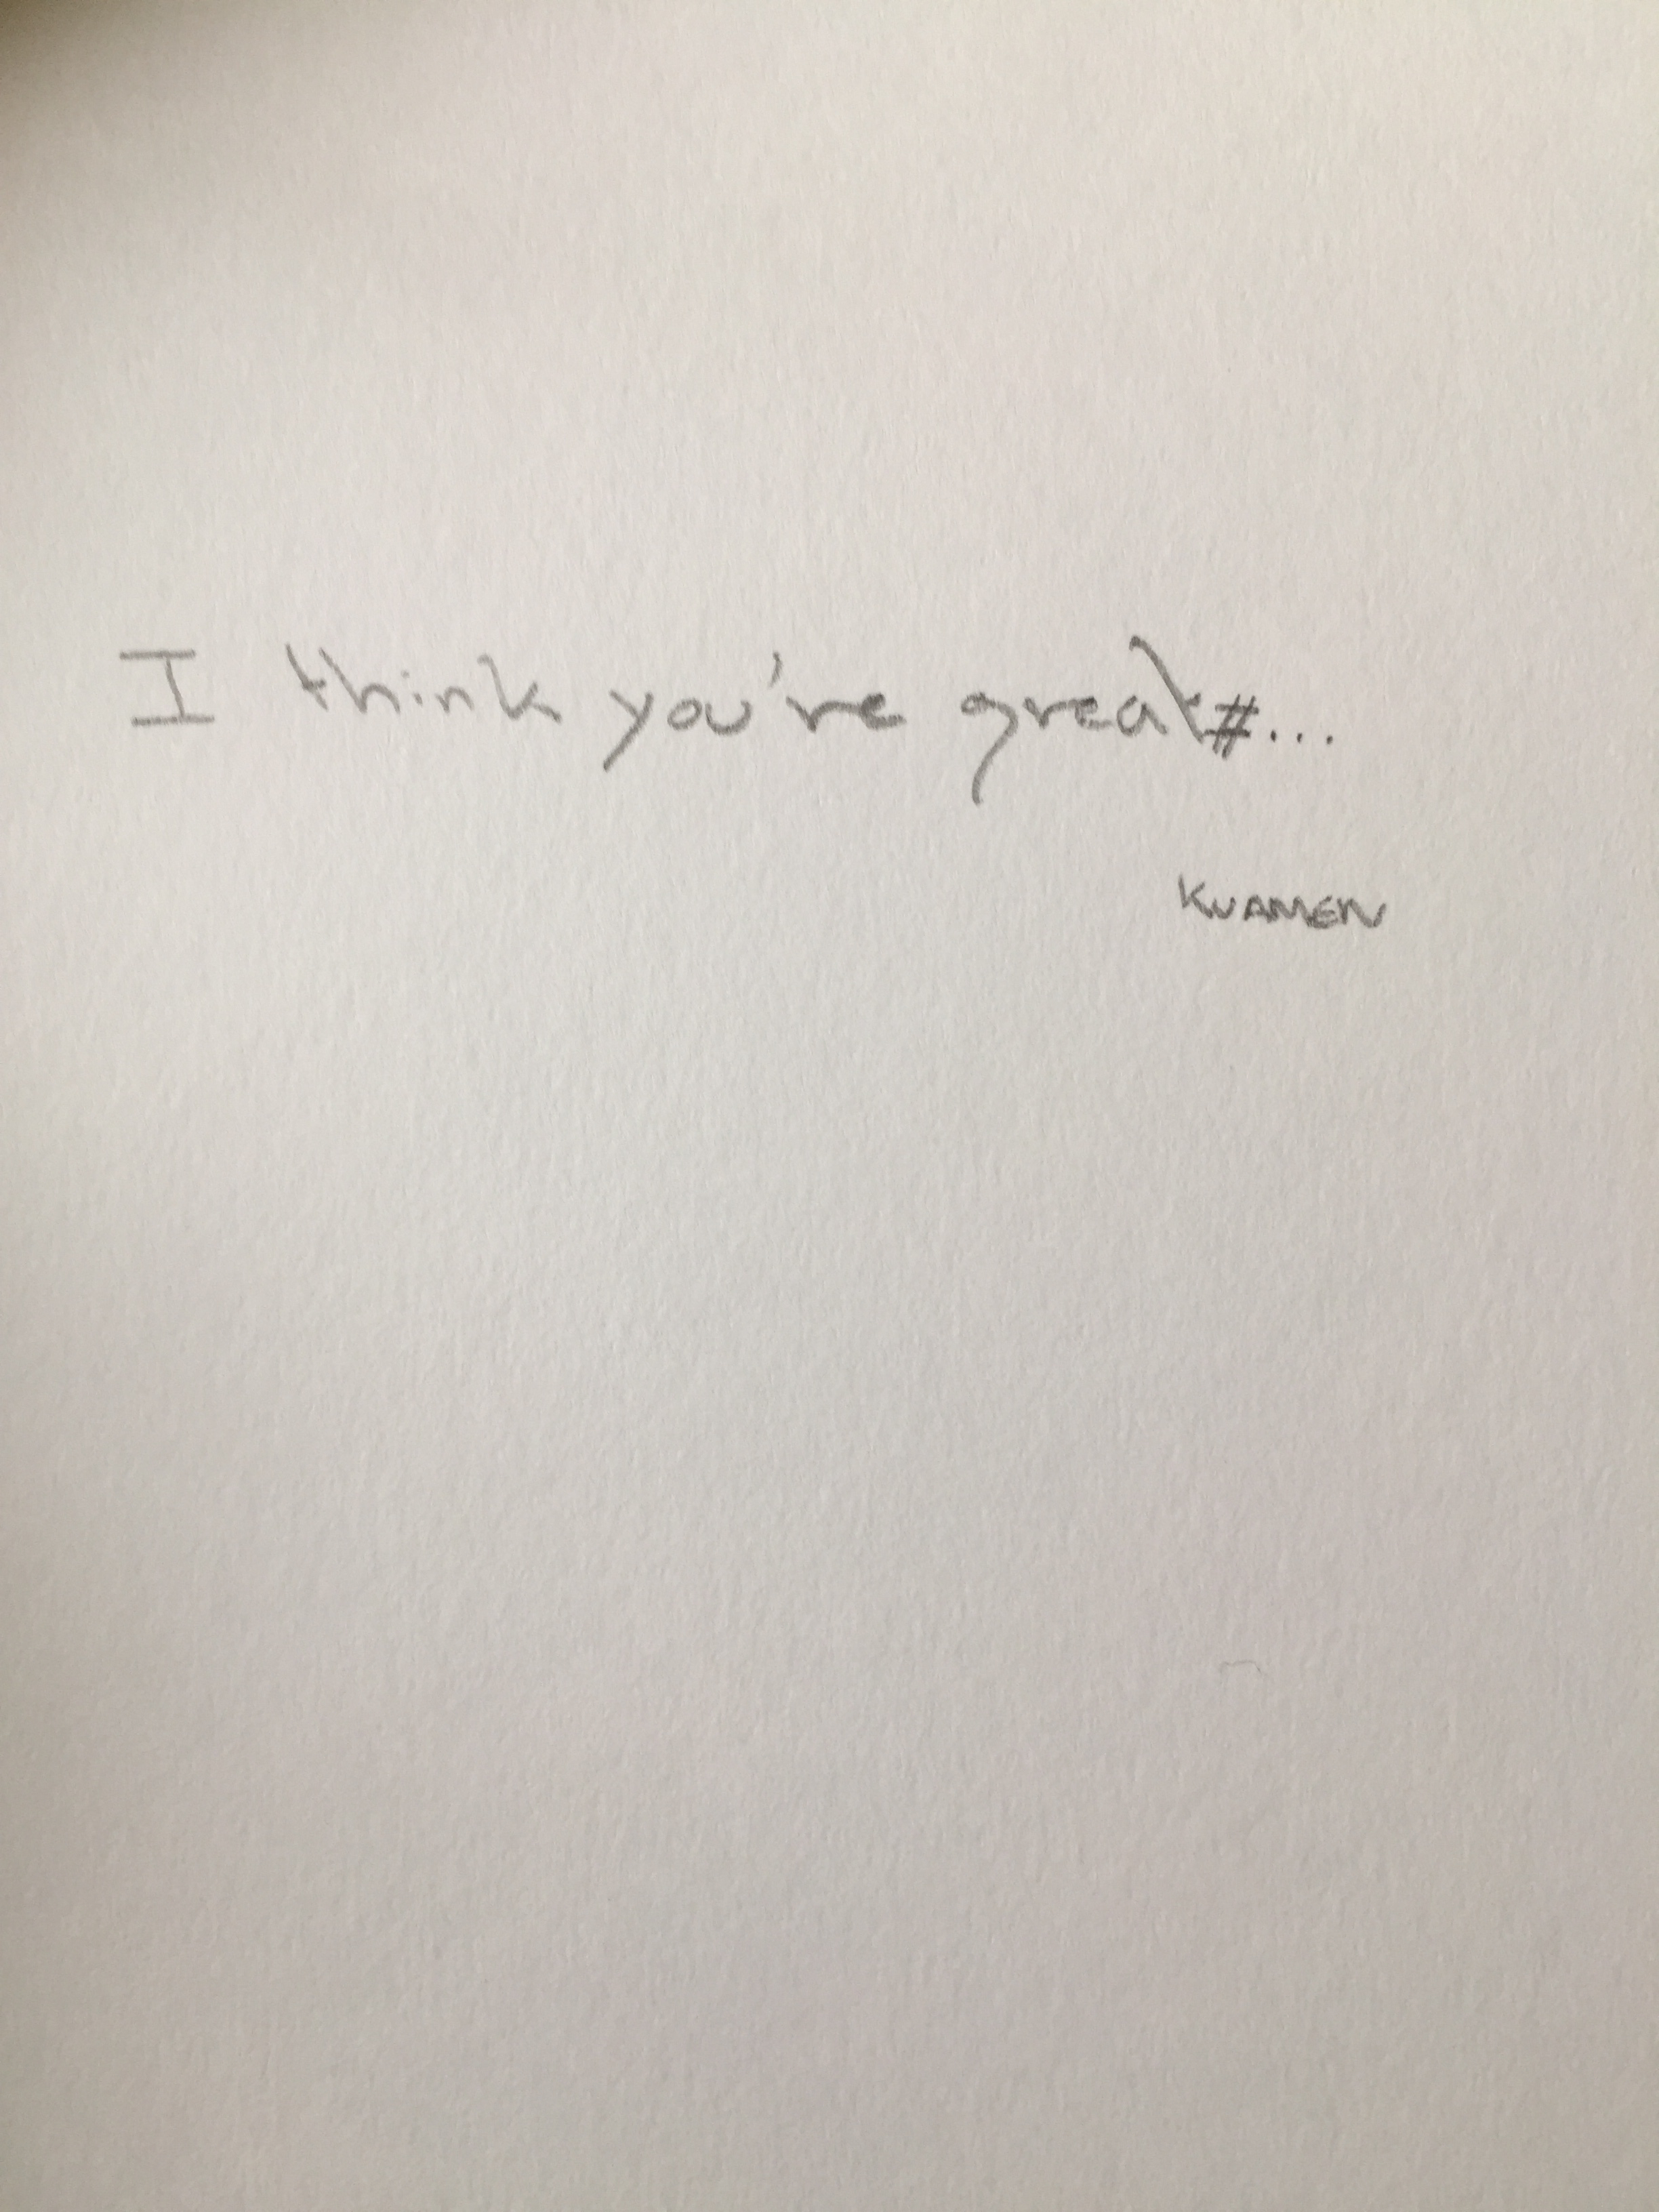 I think you're great#...
KUAMEN